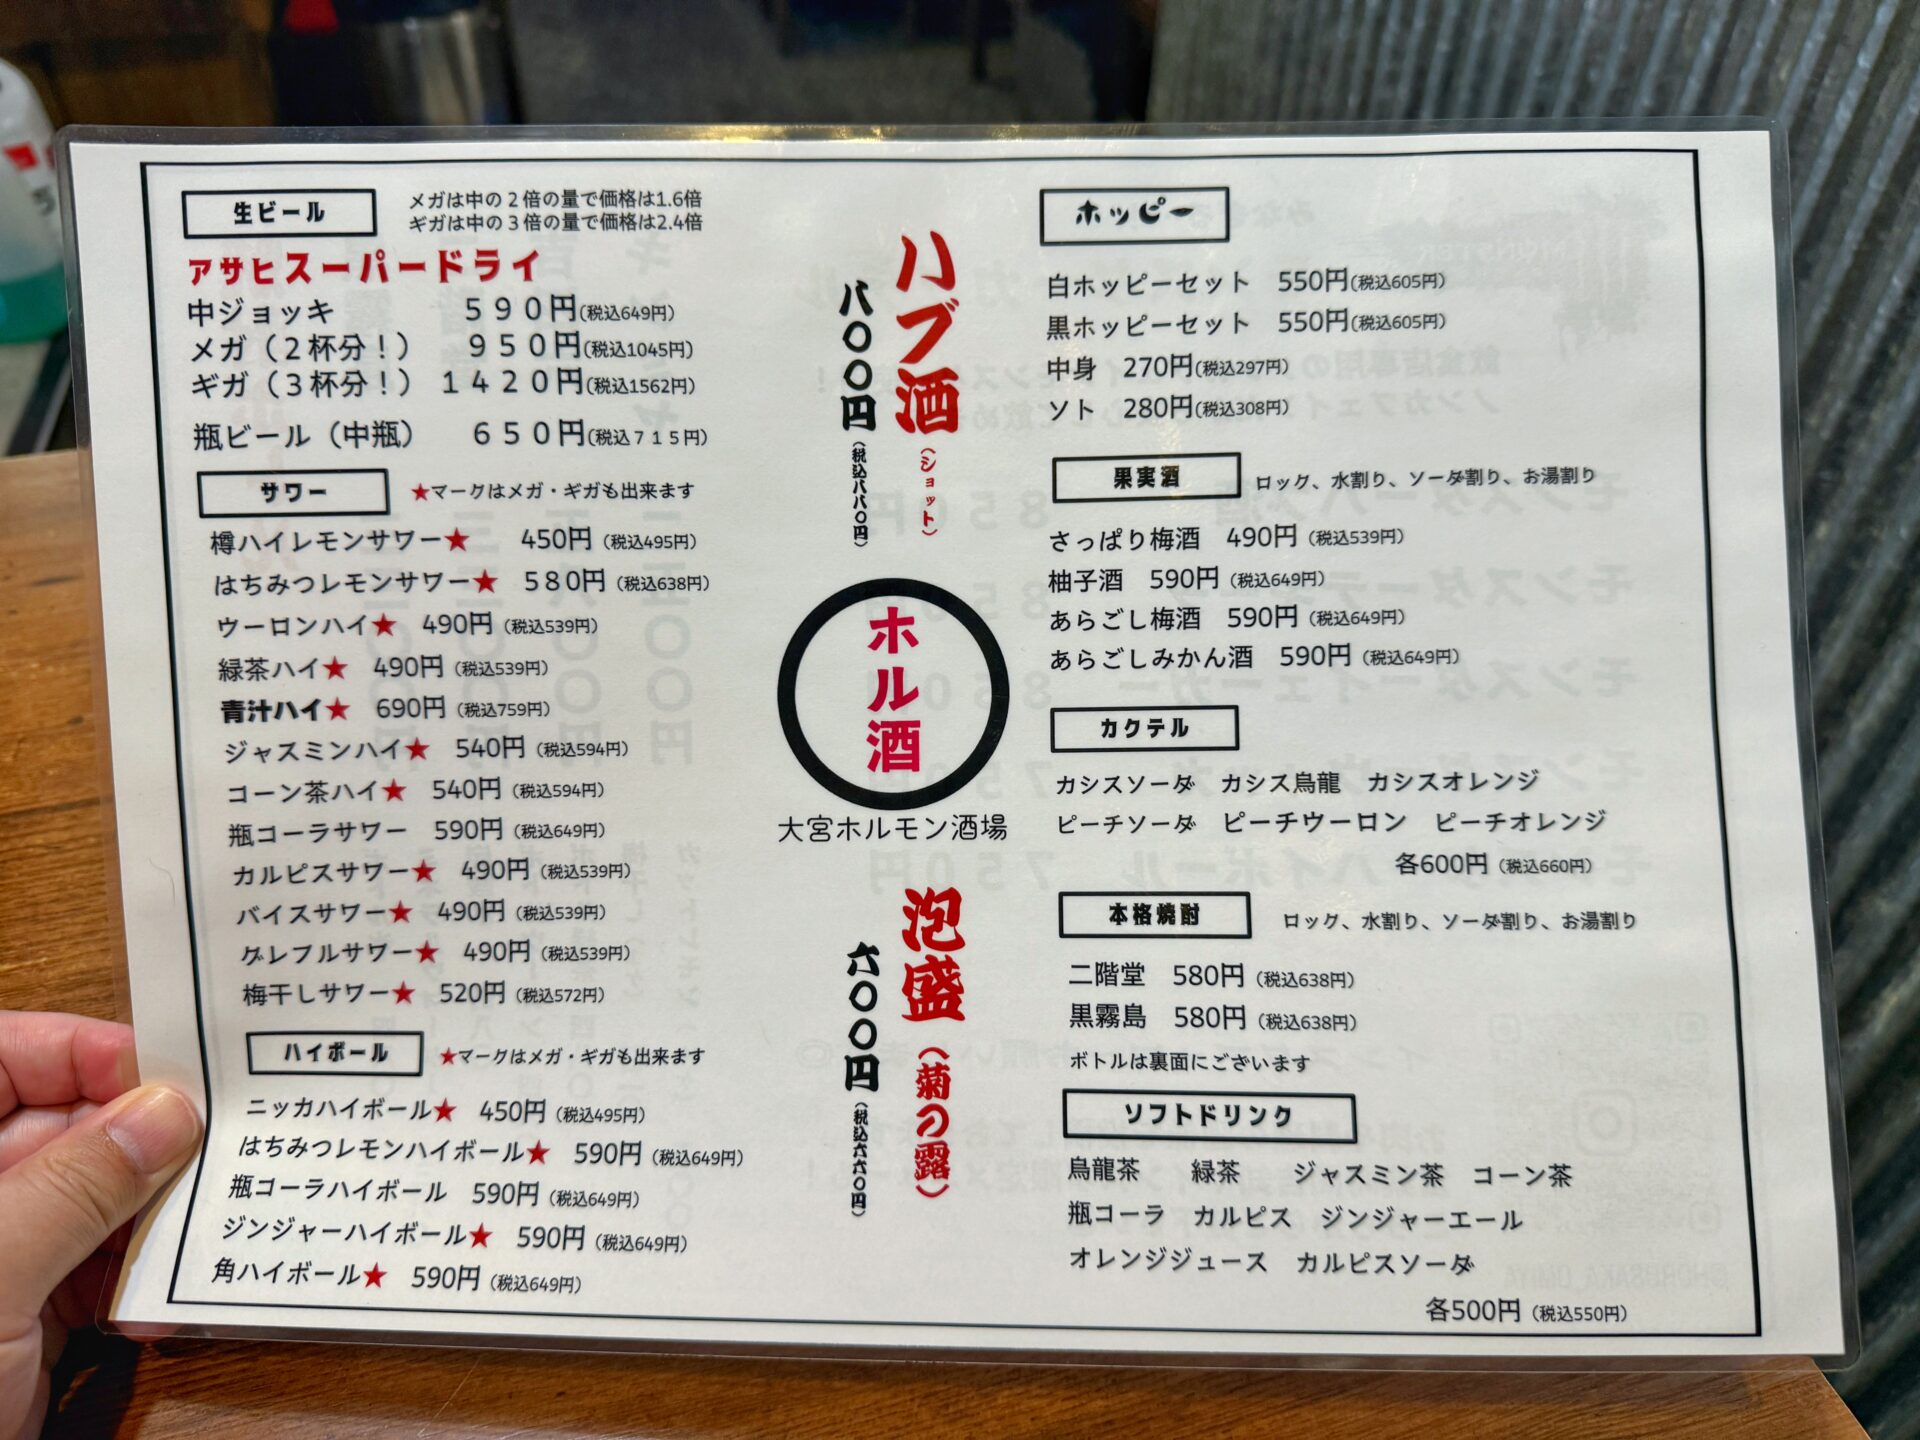 生ビール
メガは中の２倍の量で価格は1.6倍
ギガは中の３倍の量で価格は2.4倍
アサヒスーパードライ
中ジョッキ ５９０円(税込649円)
メガ（２杯分！） ９５０円(税込1045円)
ギガ（３杯分！） １４２０円(税込1562円)
瓶ビール（中瓶） ６５０円(税込７１５円)
サワー ★マークはメガ・ギガも出来ます
樽ハイレモンサワー★ 450円（税込495円）
はちみつレモンサワー★ 580円（税込638円）
ウーロンハイ★ 490円（税込539円）
緑茶ハイ★ 490円（税込539円）
青汁ハイ★ 690円（税込759円）
ジャスミンハイ★ 540円（税込594円）
コーン茶ハイ★ 540円（税込594円）
瓶コーラサワー 590円（税込649円）
カルピスサワー★ 490円（税込539円）
バイスサワー★ 490円（税込539円）
グレフルサワー★ 490円（税込539円）
梅干しサワー★ 520円（税込572円）
ハイボール ★マークはメガ・ギガも出来ます
ニッカハイボール★ 450円（税込495円）
はちみつレモンハイボール★ 590円（税込649円）
瓶コーラハイボール 590円（税込649円）
ジンジャーハイボール★ 590円（税込649円）
角ハイボール★ 590円（税込649円）
ハブ酒（ショット）
八〇〇円（税込八八〇円）
ホル酒
大宮ホルモン酒場
泡盛（菊の露）
六〇〇円（税込六六〇円）
ホッピー
白ホッピーセット 550円(税込605円)
黒ホッピーセット 550円(税込605円)
中身 270円(税込297円)
ソト 280円(税込308円)
果実酒 ロック、水割り、ソーダ割り、お湯割り
さっぱり梅酒 490円（税込539円）
柚子酒 590円（税込649円）
あらごし梅酒 590円（税込649円）
あらごしみかん酒 590円（税込649円）
カクテル
カシスソーダ カシス烏龍 カシスオレンジ
ピーチソーダ ピーチウーロン ピーチオレンジ
各600円（税込660円）
本格焼酎 ロック、水割り、ソーダ割り、お湯割り
二階堂 580円（税込638円）
黒霧島 580円（税込638円）
ボトルは裏面にございます
ソフトドリンク
烏龍茶 緑茶 ジャスミン茶 コーン茶
瓶コーラ カルピス ジンジャーエール
オレンジジュース カルピスソーダ
各500円（税込550円）